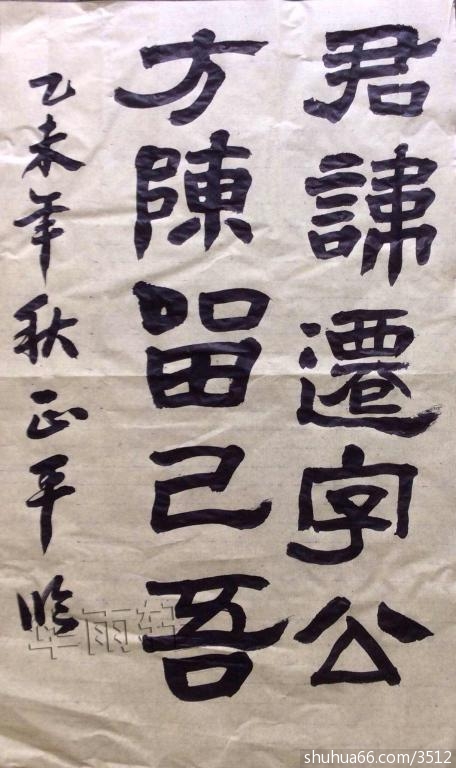 君諱遷字公
方陳留己吾
乙未年秋正平臨
华雨轩
shuhua66.com/3512